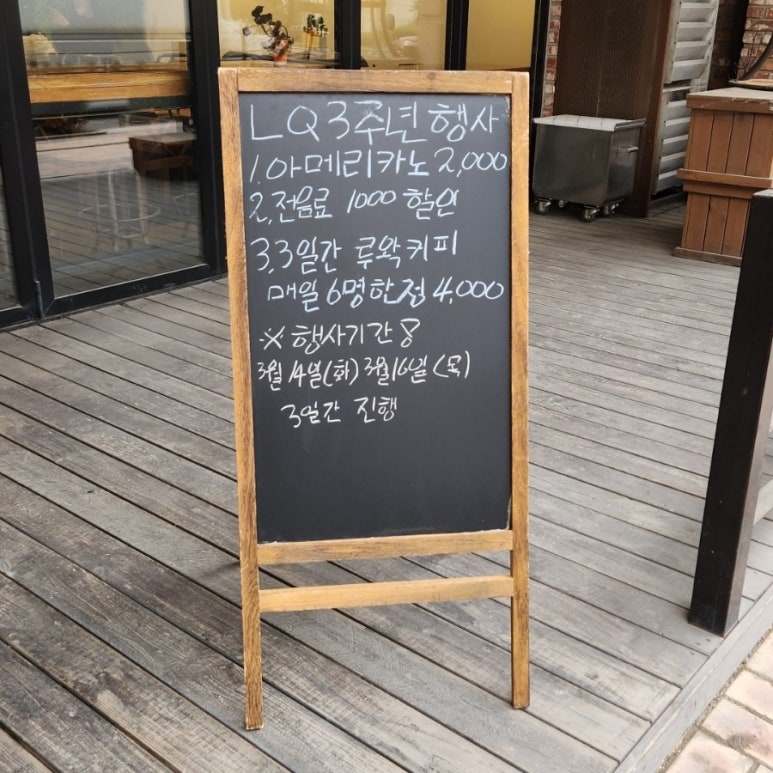 LQ 3주년 행사
1. 아메리카노 2,000
2. 전음료 1000 할인
3. 3일간 루왁커피
매일 6명한정 4,000
※ 행사기간 :
3월 14일(화) 3월 16일(목)
3일간 진행